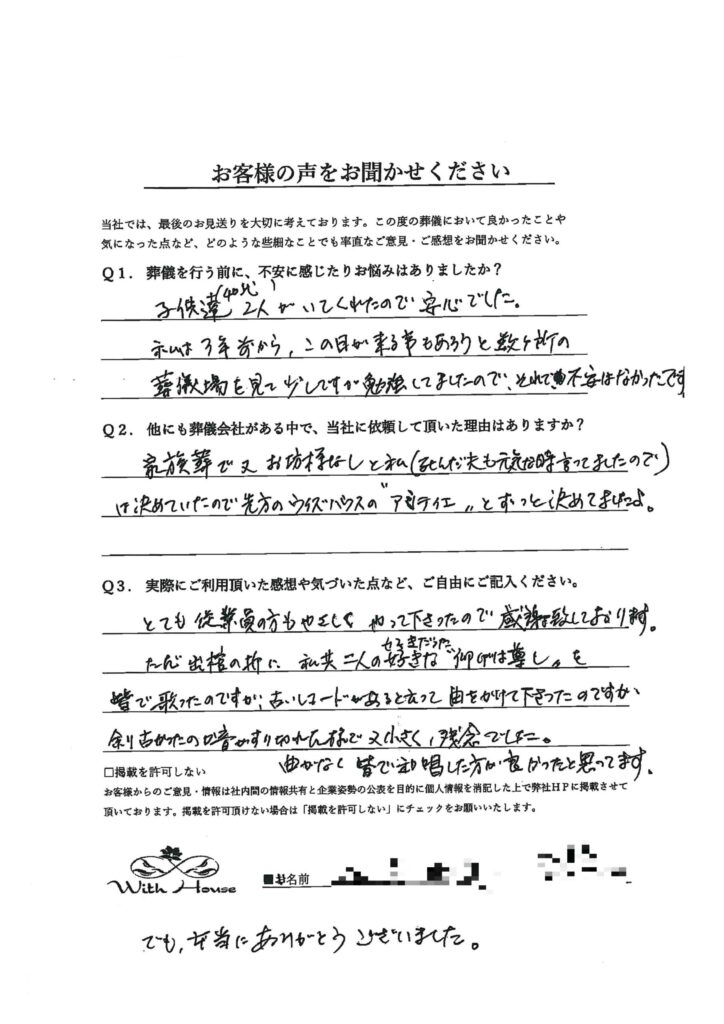 お客様の声をお聞かせください
当社では、最後のお見送りを大切に考えております。この度の葬儀において良かったことや
気になった点など、どのような些細なことでも率直なご意見・ご感想をお聞かせください。
Q1．葬儀を行う前に、不安に感じたりお悩みはありましたか？
(40代)
子供達2人がいてくれたので安心でした。
私は3年前から、この日が来る事もあろうと数ヶ所の
葬儀場を見て少しですが勉強してましたので、それで不安はなかったです
Q2．他にも葬儀会社がある中で、当社に依頼して頂いた理由はありますか？
家族葬で又お坊様なしと私(死んだ夫も元気な時言ってましたので)
は決めていたので先方のウィズハウスの〝アミティエ〟とずっと決めてましたよ。
Q3．実際にご利用頂いた感想や気づいた点など、ご自由にご記入ください。
とても従業員の方もやさしくやって下さったので感謝致しております。
ただ出棺の折に私共二人の好きな〝仰げば尊し〟を
皆で歌ったのですが、古いレコードがあると云って曲をかけて下さったのですが
余り古かったのか音がすり切れた様で又小さく、残念でした。
曲がなく皆で和唱した方が良かったと思ってます。
□掲載を許可しない
お客様からのご意見・情報は社内間の情報共有と企業姿勢の公表を目的に個人情報を消記した上で弊社HPに掲載させて
頂いております。掲載を許可頂けない場合は「掲載を許可しない」にチェックをお願いいたします。
With House
名前
でも、本当にありがとうございました。